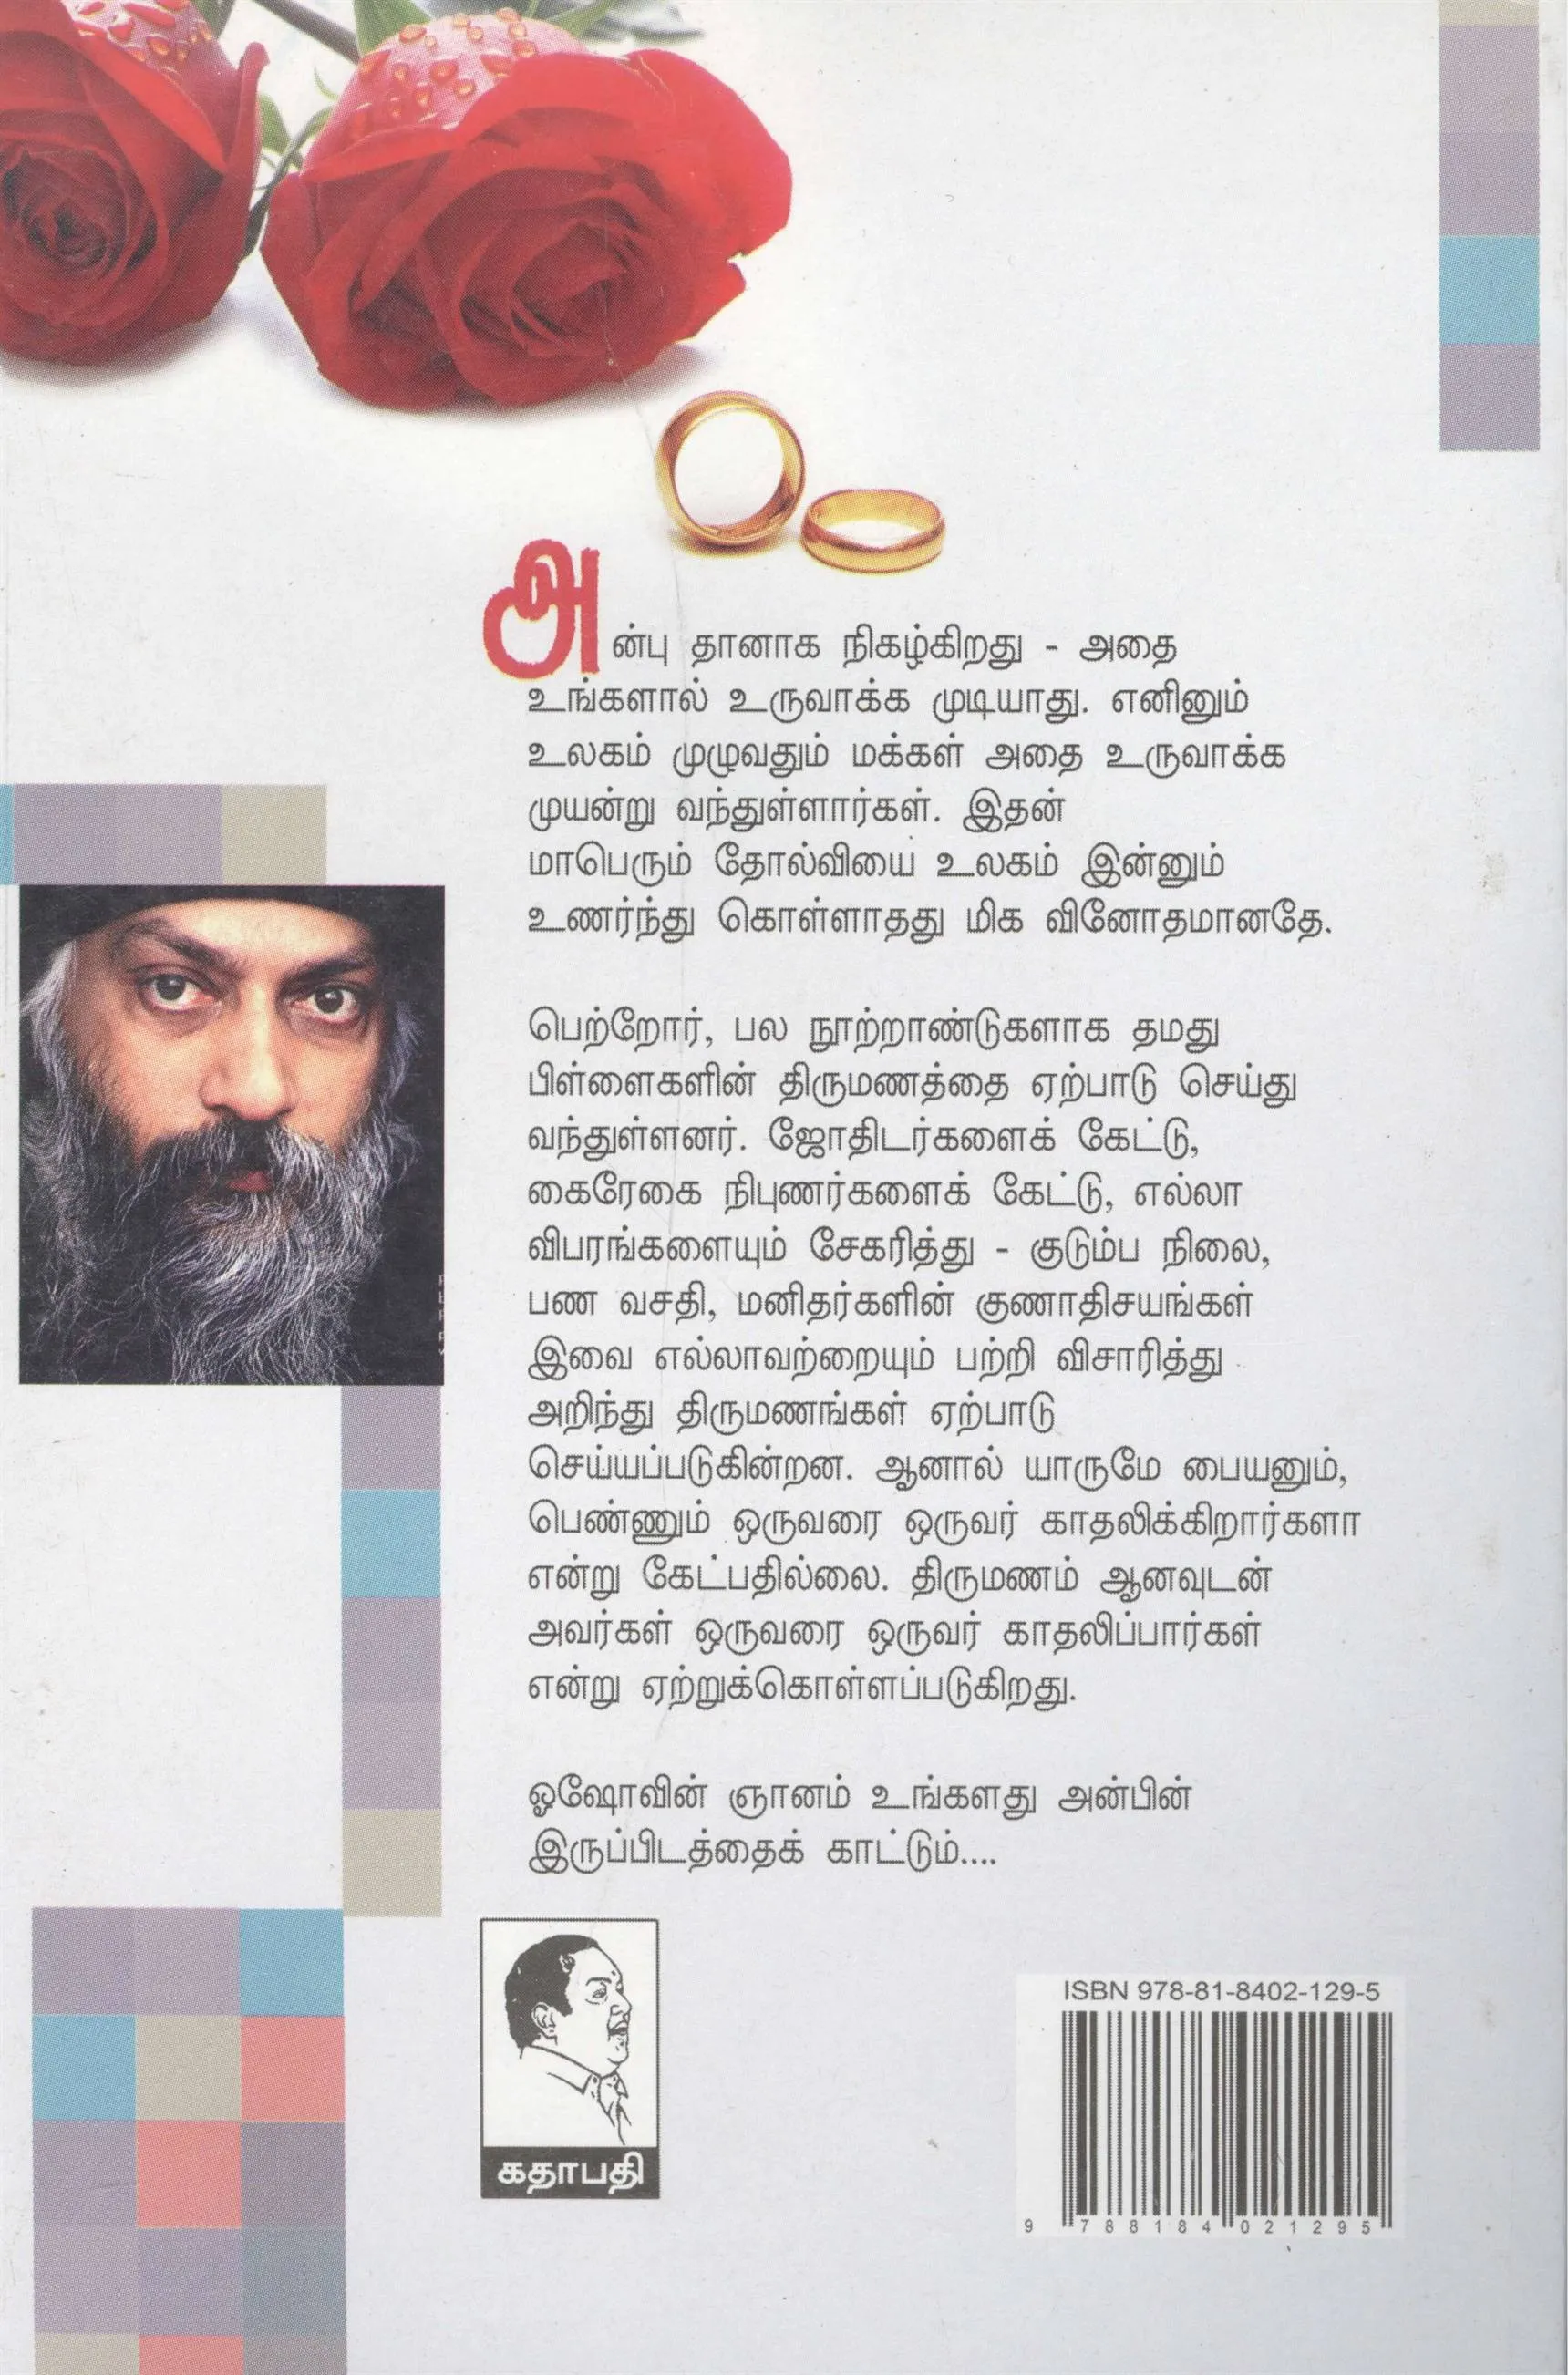 அன்பு தானாக நிகழ்கிறது - அதை
உங்களால் உருவாக்க முடியாது. எனினும்
உலகம் முழுவதும் மக்கள் அதை உருவாக்க
முயன்று வந்துள்ளார்கள். இதன்
மாபெரும் தோல்வியை உலகம் இன்னும்
உணர்ந்து கொள்ளாதது மிக வினோதமானதே.
பெற்றோர், பல நூற்றாண்டுகளாக தமது
பிள்ளைகளின் திருமணத்தை ஏற்பாடு செய்து
வந்துள்ளனர். ஜோதிடர்களைக் கேட்டு,
கைரேகை நிபுணர்களைக் கேட்டு, எல்லா
விபரங்களையும் சேகரித்து - குடும்ப நிலை,
பண வசதி, மனிதர்களின் குணாதிசயங்கள்
இவை எல்லாவற்றையும் பற்றி விசாரித்து
அறிந்து திருமணங்கள் ஏற்பாடு
செய்யப்படுகின்றன. ஆனால் யாருமே பையனும்,
பெண்ணும் ஒருவரை ஒருவர் காதலிக்கிறார்களா
என்று கேட்பதில்லை. திருமணம் ஆனவுடன்
அவர்கள் ஒருவரை ஒருவர் காதலிப்பார்கள்
என்று ஏற்றுக்கொள்ளப்படுகிறது.
ஓஷோவின் ஞானம் உங்களது அன்பின்
இருப்பிடத்தைக் காட்டும்....
கதாபதி
ISBN 978-81-8402-129-5
9 788184 021295